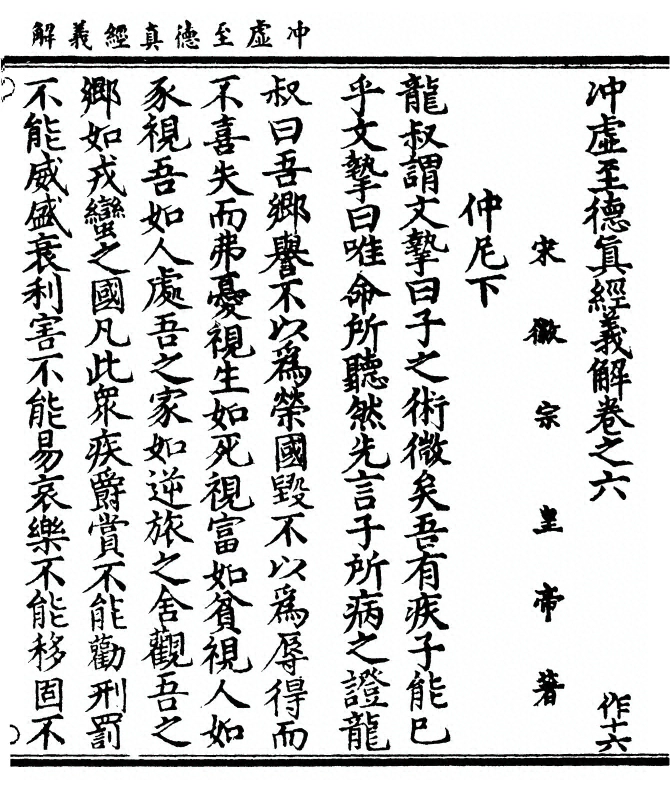 冲虛至德真經義解
冲虛至德眞經義解卷之六
作十六
宋徽宗皇帝著
仲尼下
龍叔謂文摯曰子之術微矣吾有疾子能已
乎文摯曰唯命所聽然先言子所病之證龍
叔曰吾鄉譽不以爲榮國毀不以爲辱得而
不喜失而弗憂視生如死視富如貧視人如
豕視吾如人處吾之家如逆旅之舍觀吾之
鄉如戎蠻之國凡此衆疾爵賞不能勸刑罰
不能威盛衰利害不能易哀樂不能移固不